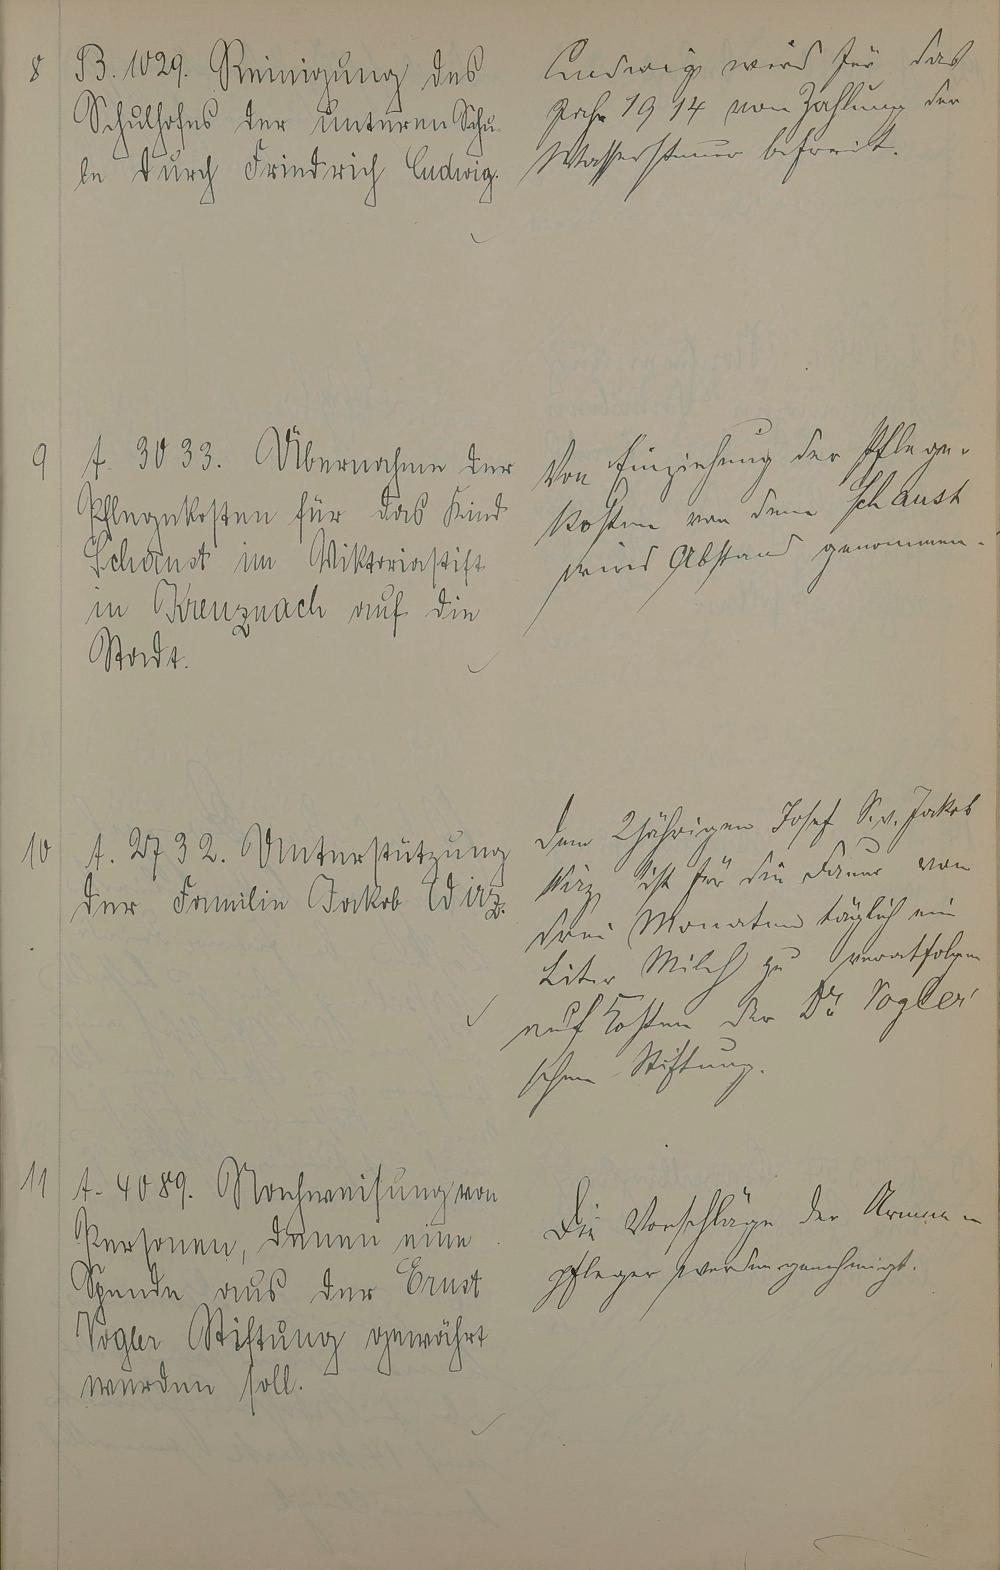 8 B. 1029. Reinigung des
Schulhofes der unteren Schu-
le durch Friedrich Ludwig.
Ludwig wird für das
Jahr 1914 von Zahlung der
Wassersteuer befreit.
9 A. 3033. Übernahme der
Pflegekosten für das Kind
Schaust im Viktoriastift
in Kreuznach auf die
Stadt.
Von Einziehung der Pflege-
kosten von dem Schaust
wird Abstand genommen.
10 A. 2732. Unterstützung
der Familie Jakob
Dem 2jährigen Josef S. v. Jakob
ist für die Dauer von
drei Monaten täglich ein
Liter Milch zu verabfolgen
auf Kosten der Dr. Vogler'
schen Stiftung.
11 A. 4089. Nachweisung von
Personen, denen eine
Spende aus der Ernst
Vogler Stiftung gewährt
werden soll.
Die Vorschläge der Armen-
pfleger werden genehmigt.